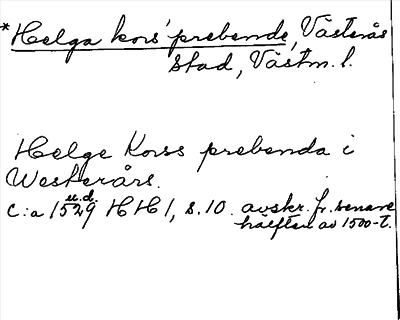 *Helga kors' prebende, Västerås
stad, Västm. l.
Helge Korss prebenda i
Westerårs.
u.d.
C:a 1529 HH 1, s. 10. avskr. fr. senare
hälften av 1500-t.